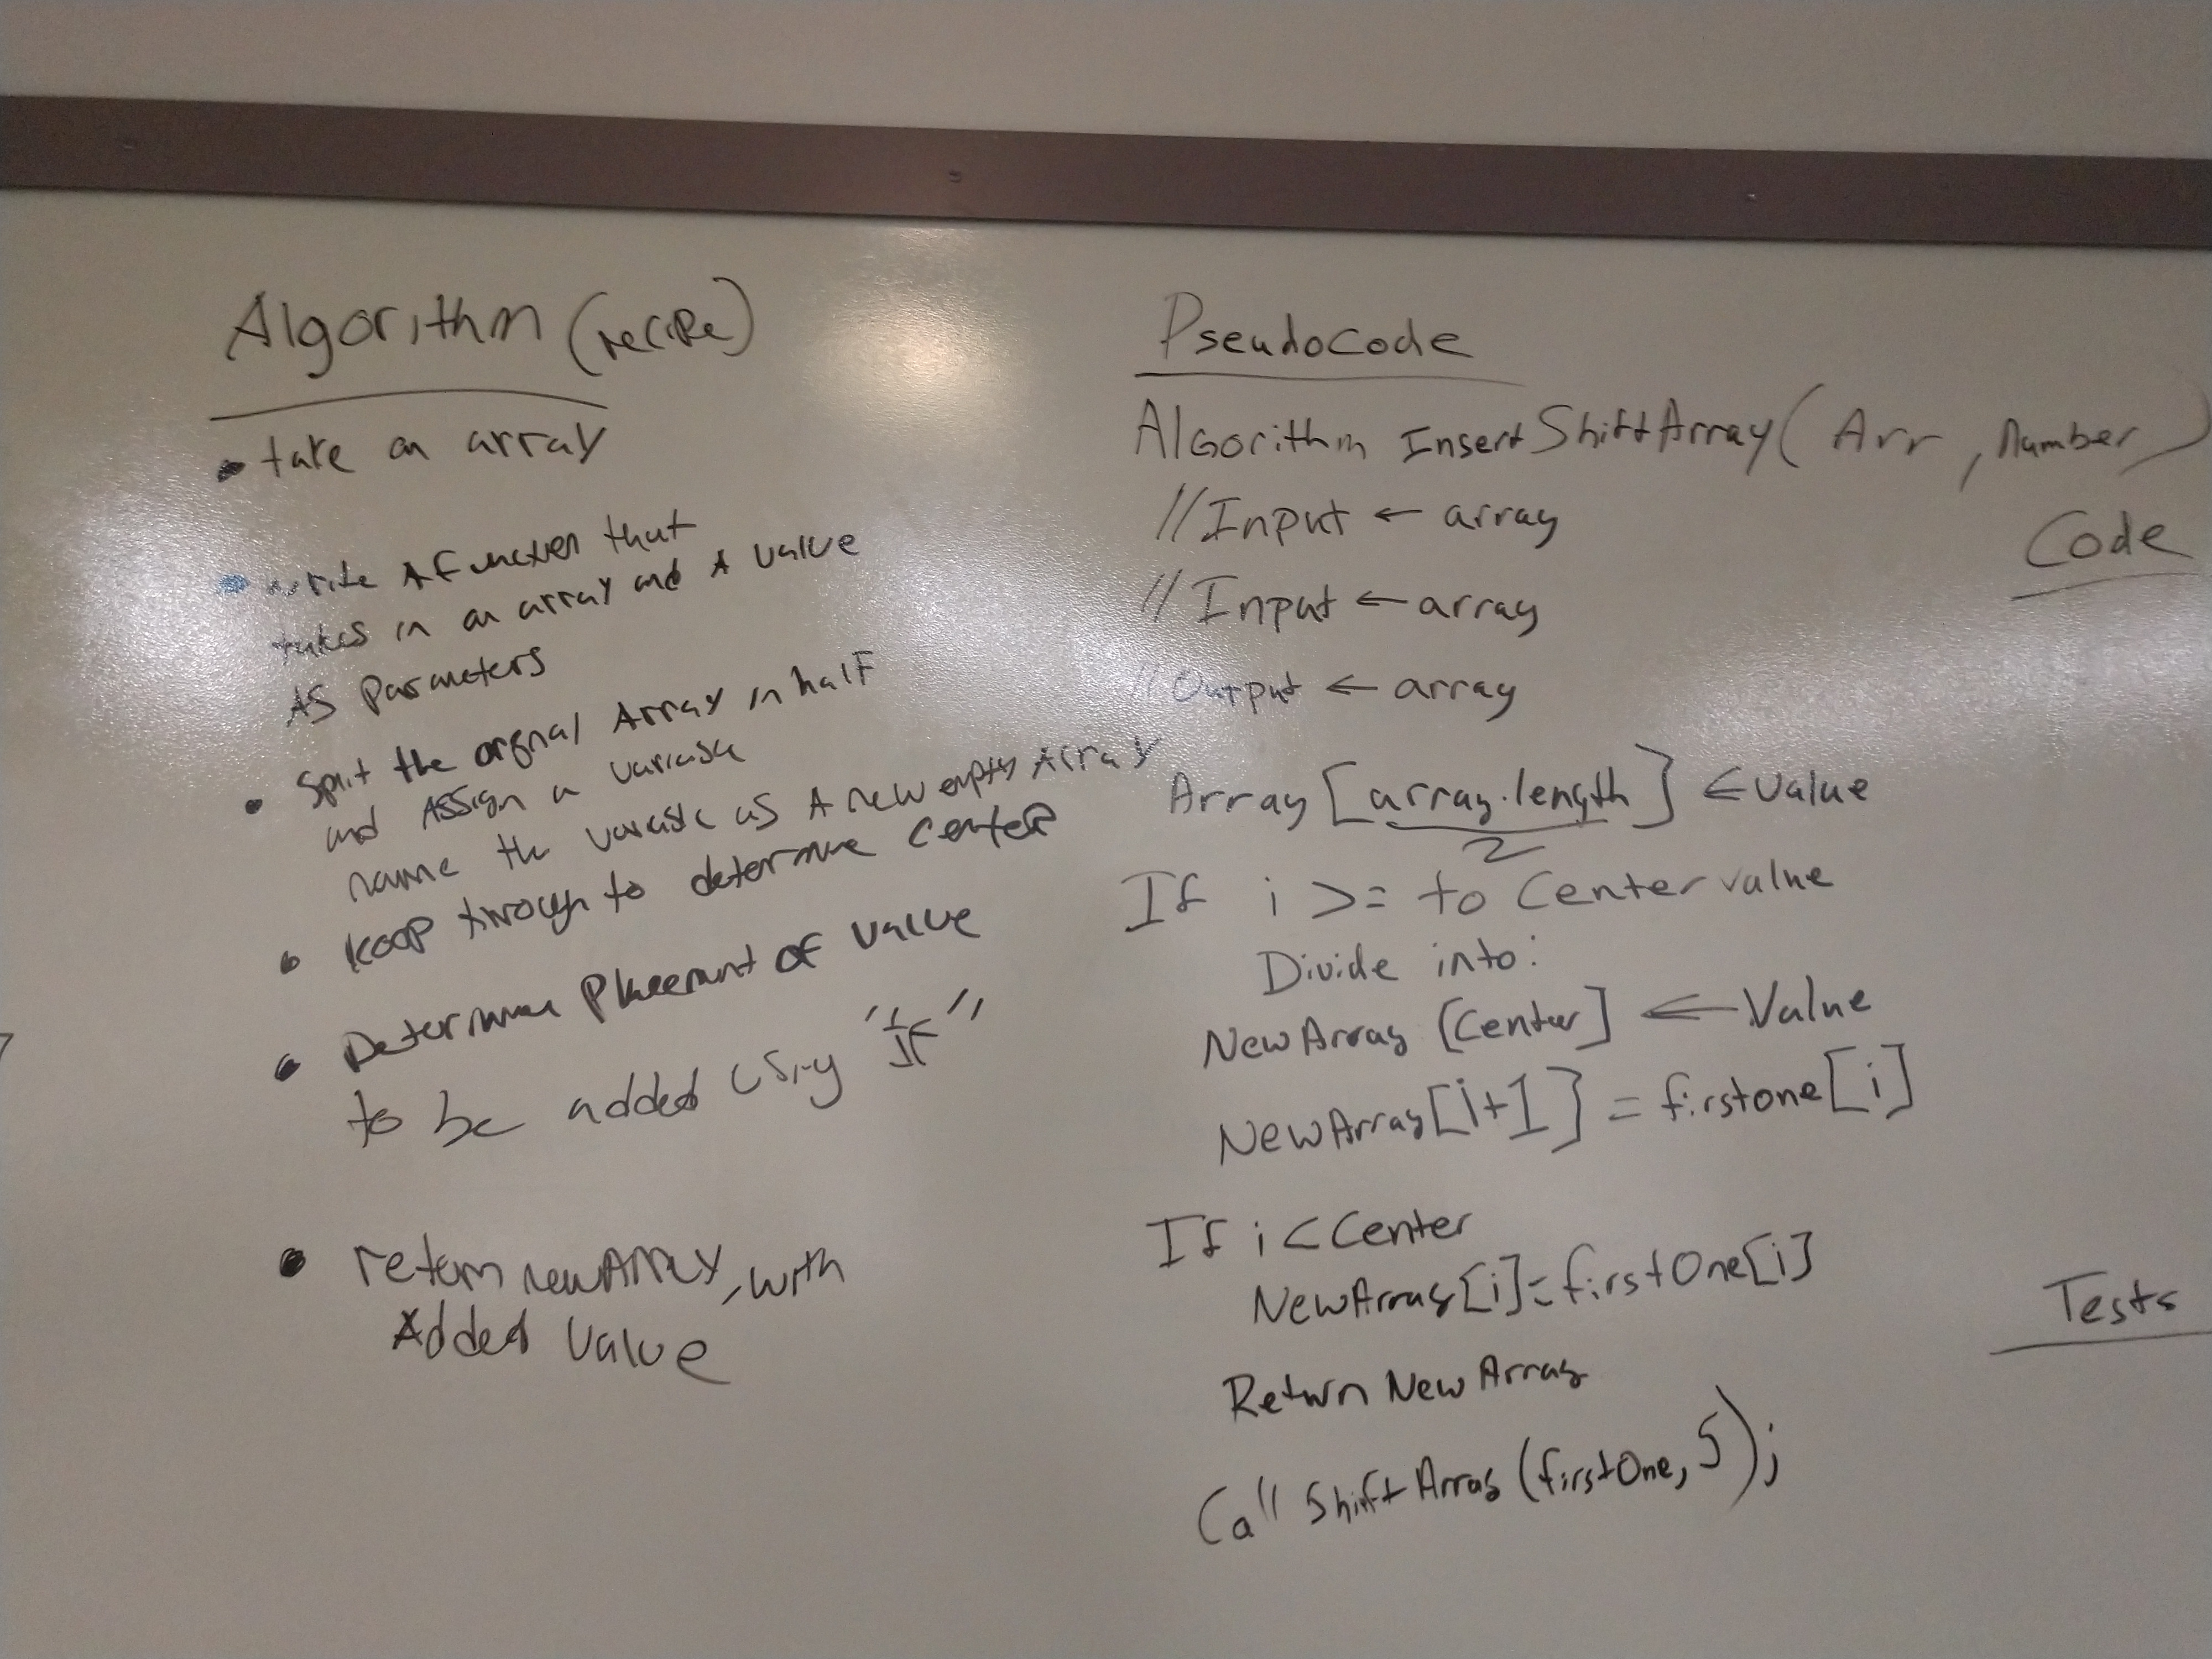 Algorithm (recipe)
• take an array
• write A function that
takes in an array and A value
AS Parameters
• Split the orginal Array in half
and Assign a variable
name the variable as A new empty Array
• loop through to determine center
• Determine Placement of value
to be added using "If"
• return newArray, with
Added Value
Pseudocode
Algorithm InsertShiftArray( Arr , number)
//Input ← array
//Input ← array
//Output ← array
Array [array.length] ← value
2
If i >= to Center value
Divide into:
NewArray [Center] ← Value
NewArray[i+1] = firstone[i]
If i < Center
NewArray[i] = firstOne[i]
Return NewArray
Call ShiftArray (firstOne, 5);
Code
Tests